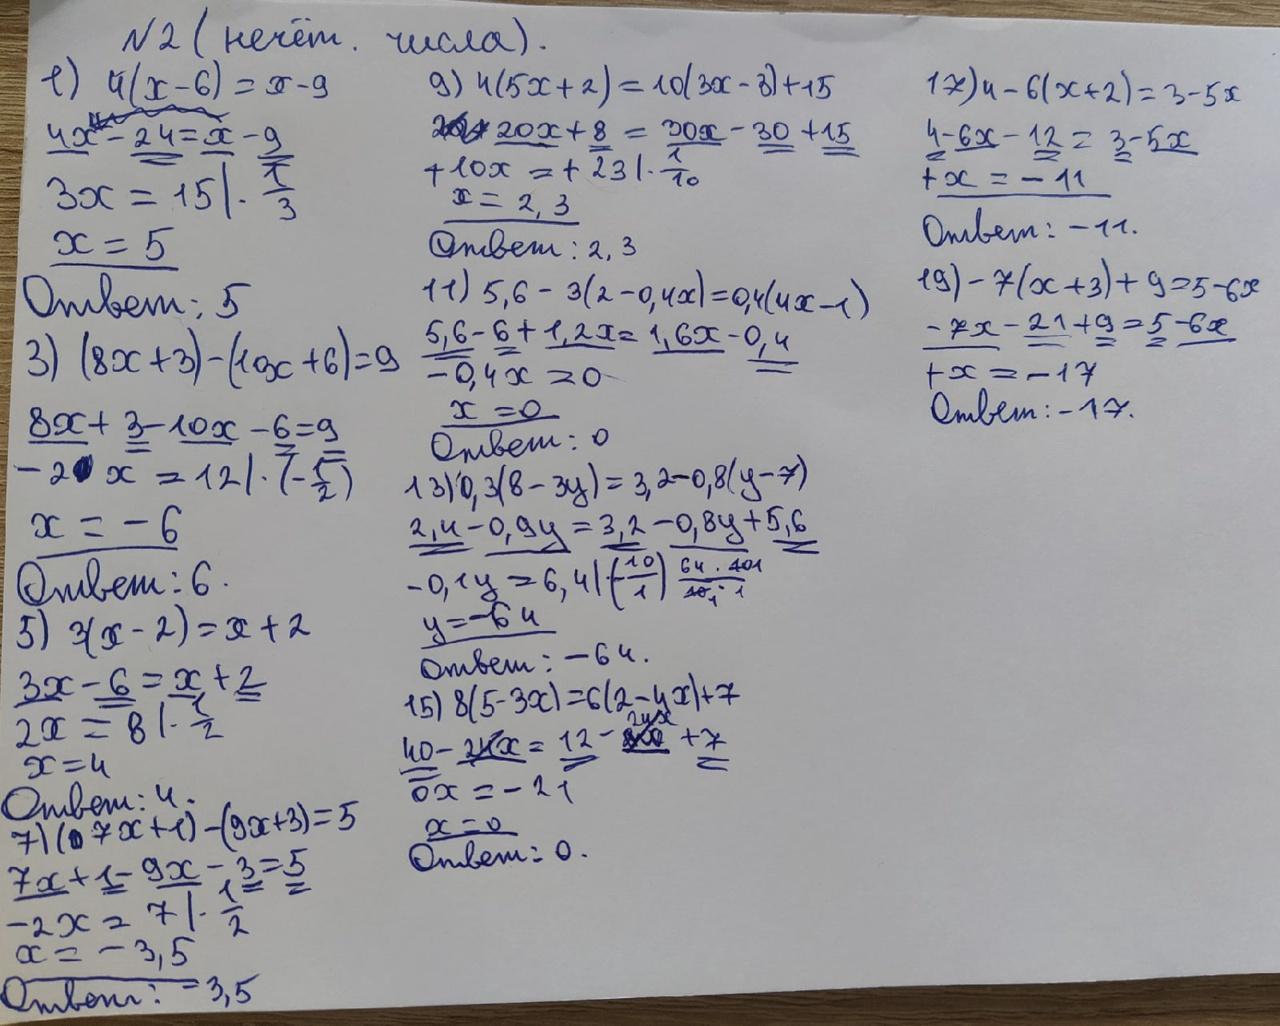 N2 (нечёт. числа).
1) 4(x-6)=x-9
4x-24=x-9
3x=15|·1/3
x=5
Ответ: 5
3) (8x+3)-(10x+6)=9
8x+3-10x-6=9
-2x=12|·(-1/2)
x=-6
Ответ: 6.
5) 3(x-2)=x+2
3x-6=x+2
2x=8|·1/2
x=4
Ответ: 4.
7) (7x+1)-(9x+3)=5
7x+1-9x-3=5
-2x=7|·1/2
x=-3,5
Ответ: -3,5
9) 4(5x+2)=10(3x-3)+15
20x+8=30x-30+15
+10x=+23|·1/10
x=2,3
Ответ: 2,3
11) 5,6-3(2-0,4x)=0,4(4x-1)
5,6-6+1,2x=1,6x-0,4
-0,4x=0
x=0
Ответ: 0
13) 0,3(8-3y)=3,2-0,8(y-7)
2,4-0,9y=3,2-0,8y+5,6
-0,1y=6,4|(-10/1) 64·101/10·1
y=-64
Ответ: -64.
15) 8(5-3x)=6(2-4x)+7
40-24x=12-24x+7
0x=-21
x=0
Ответ: 0.
17) 4-6(x+2)=3-5x
4-6x-12=3-5x
+x=-11
Ответ: -11.
19) -7(x+3)+9=5-6x
-7x-21+9=5-6x
+x=-17
Ответ: -17.